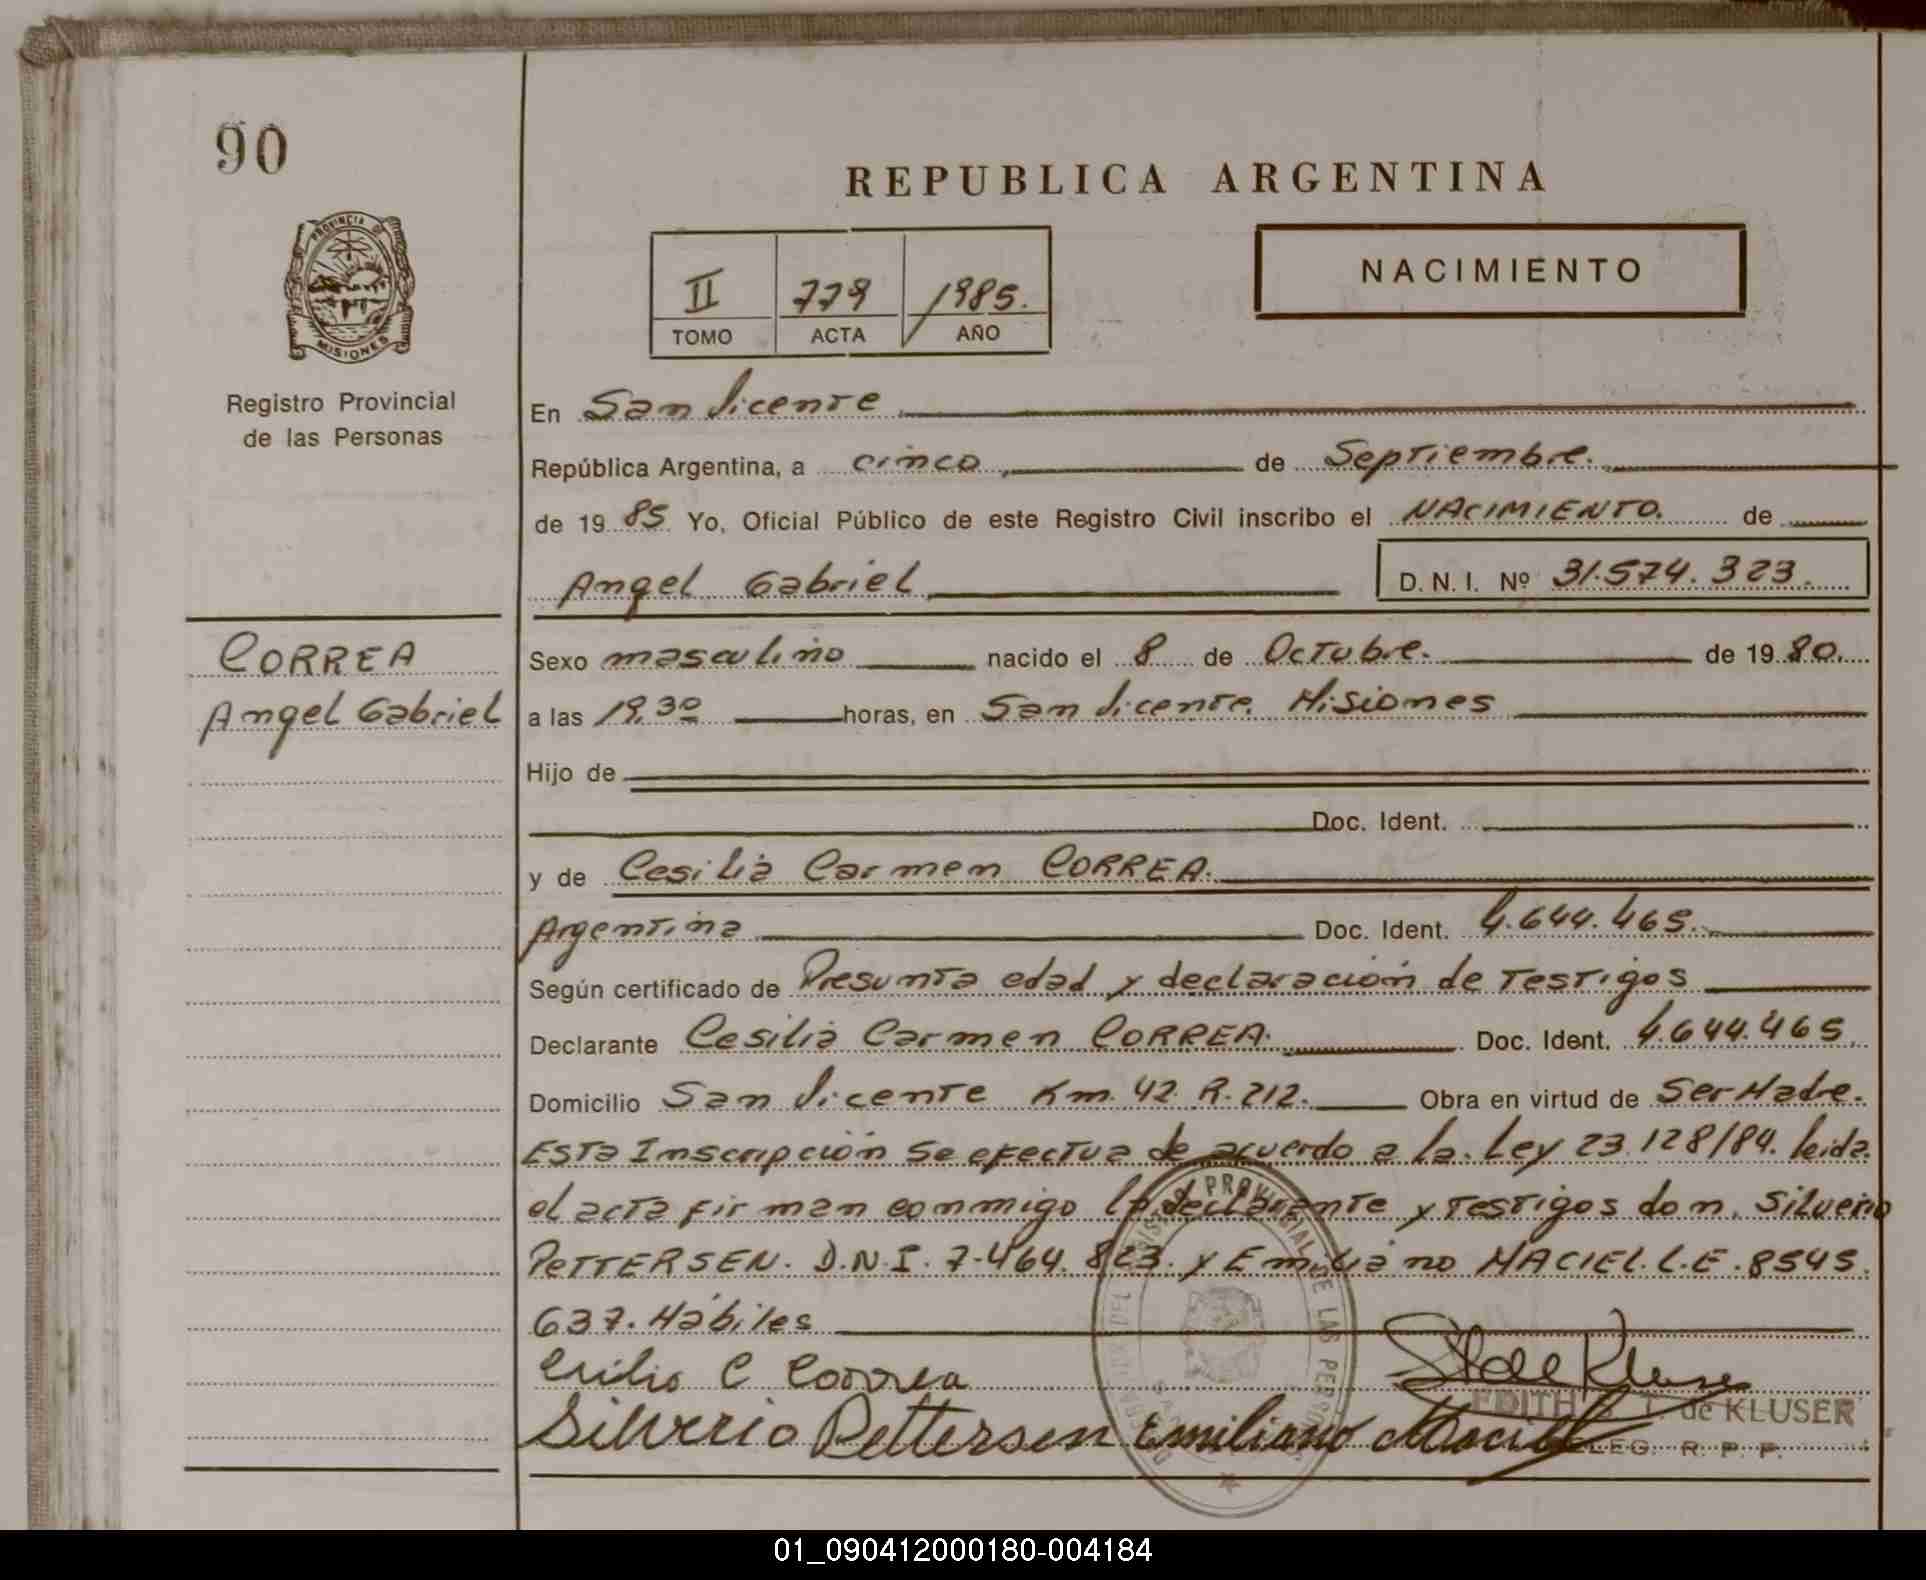 90
REPUBLICA ARGENTINA
PROVINCIA DE
MISIONES
II 779 1985.
TOMO ACTA AÑO
NACIMIENTO
Registro Provincial
de las Personas
En San Vicente
República Argentina, a cinco de Septiembre.
de 1985 Yo, Oficial Público de este Registro Civil inscribo el NACIMIENTO. de
Angel Gabriel D. N. I. Nº 31.574.323.
CORREA
Angel Gabriel
Sexo masculino nacido el 8 de Octubre. de 1980.
a las 19,30 horas, en San Vicente. Misiones
Hijo de
Doc. Ident.
y de Cesilia Carmen CORREA.
Argentina Doc. Ident. 4.644.465.
Según certificado de Presunta edad y declaración de Testigos
Declarante Cesilia Carmen CORREA. Doc. Ident. 4.644.465.
Domicilio San Vicente Km. 42. R. 212. Obra en virtud de Ser Madre.
Esta Inscripción se efectua de acuerdo a la Ley 23.128/84. leida
el acta firman conmigo la declarante y Testigos don. Silverio
PETTERSEN. D.N.I. 7.464.823. y Emiliano MACIEL. L.E. 8545.
637. Hábiles
C Correa
Silverio Pettersen Emiliano Maciel
EDITH T. de KLUSER
LEG. R. P. P.
PROVINCIAL DE LAS PERSONAS
01_090412000180-004184